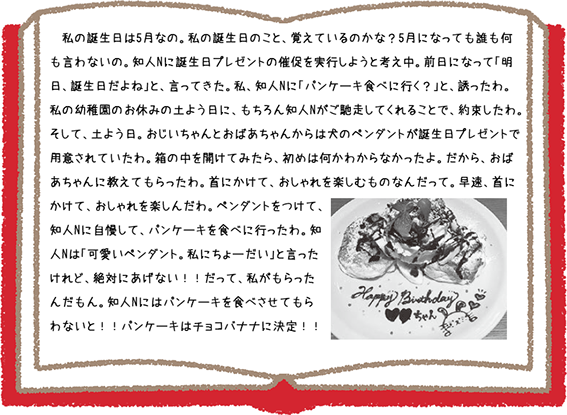 私の誕生日は5月なの。私の誕生日のこと、覚えているのかな?5月になっても誰も何
も言わないの。知人Nに誕生日プレゼントの催促を実行しようと考え中。前日になって「明
日、誕生日だよね」と、言ってきた。私、知人Nに「パンケーキ食べに行く?」と、誘ったわ。
私の幼稚園のお休みの土よう日に、もちろん知人Nがご馳走してくれることで、約束したわ。
そして、土よう日。おじいちゃんとおばあちゃんからは犬のペンダントが誕生日プレゼントで
用意されていたわ。箱の中を開けてみたら、初めは何かわからなかったよ。だから、おば
あちゃんに教えてもらったわ。首にかけて、おしゃれを楽しむものなんだって。早速、首に
かけて、おしゃれを楽しんだわ。ペンダントをつけて、
知人Nに自慢して、パンケーキを食べに行ったわ。知
人Nは「可愛いペンダント。私にちょーだい」と言った
けれど、絶対にあげない!!だって、私がもらった
んだもん。知人Nにはパンケーキを食べさせてもら
わないと!!パンケーキはチョコバナナに決定!!
Happy Birthday
♥♥ちゃん